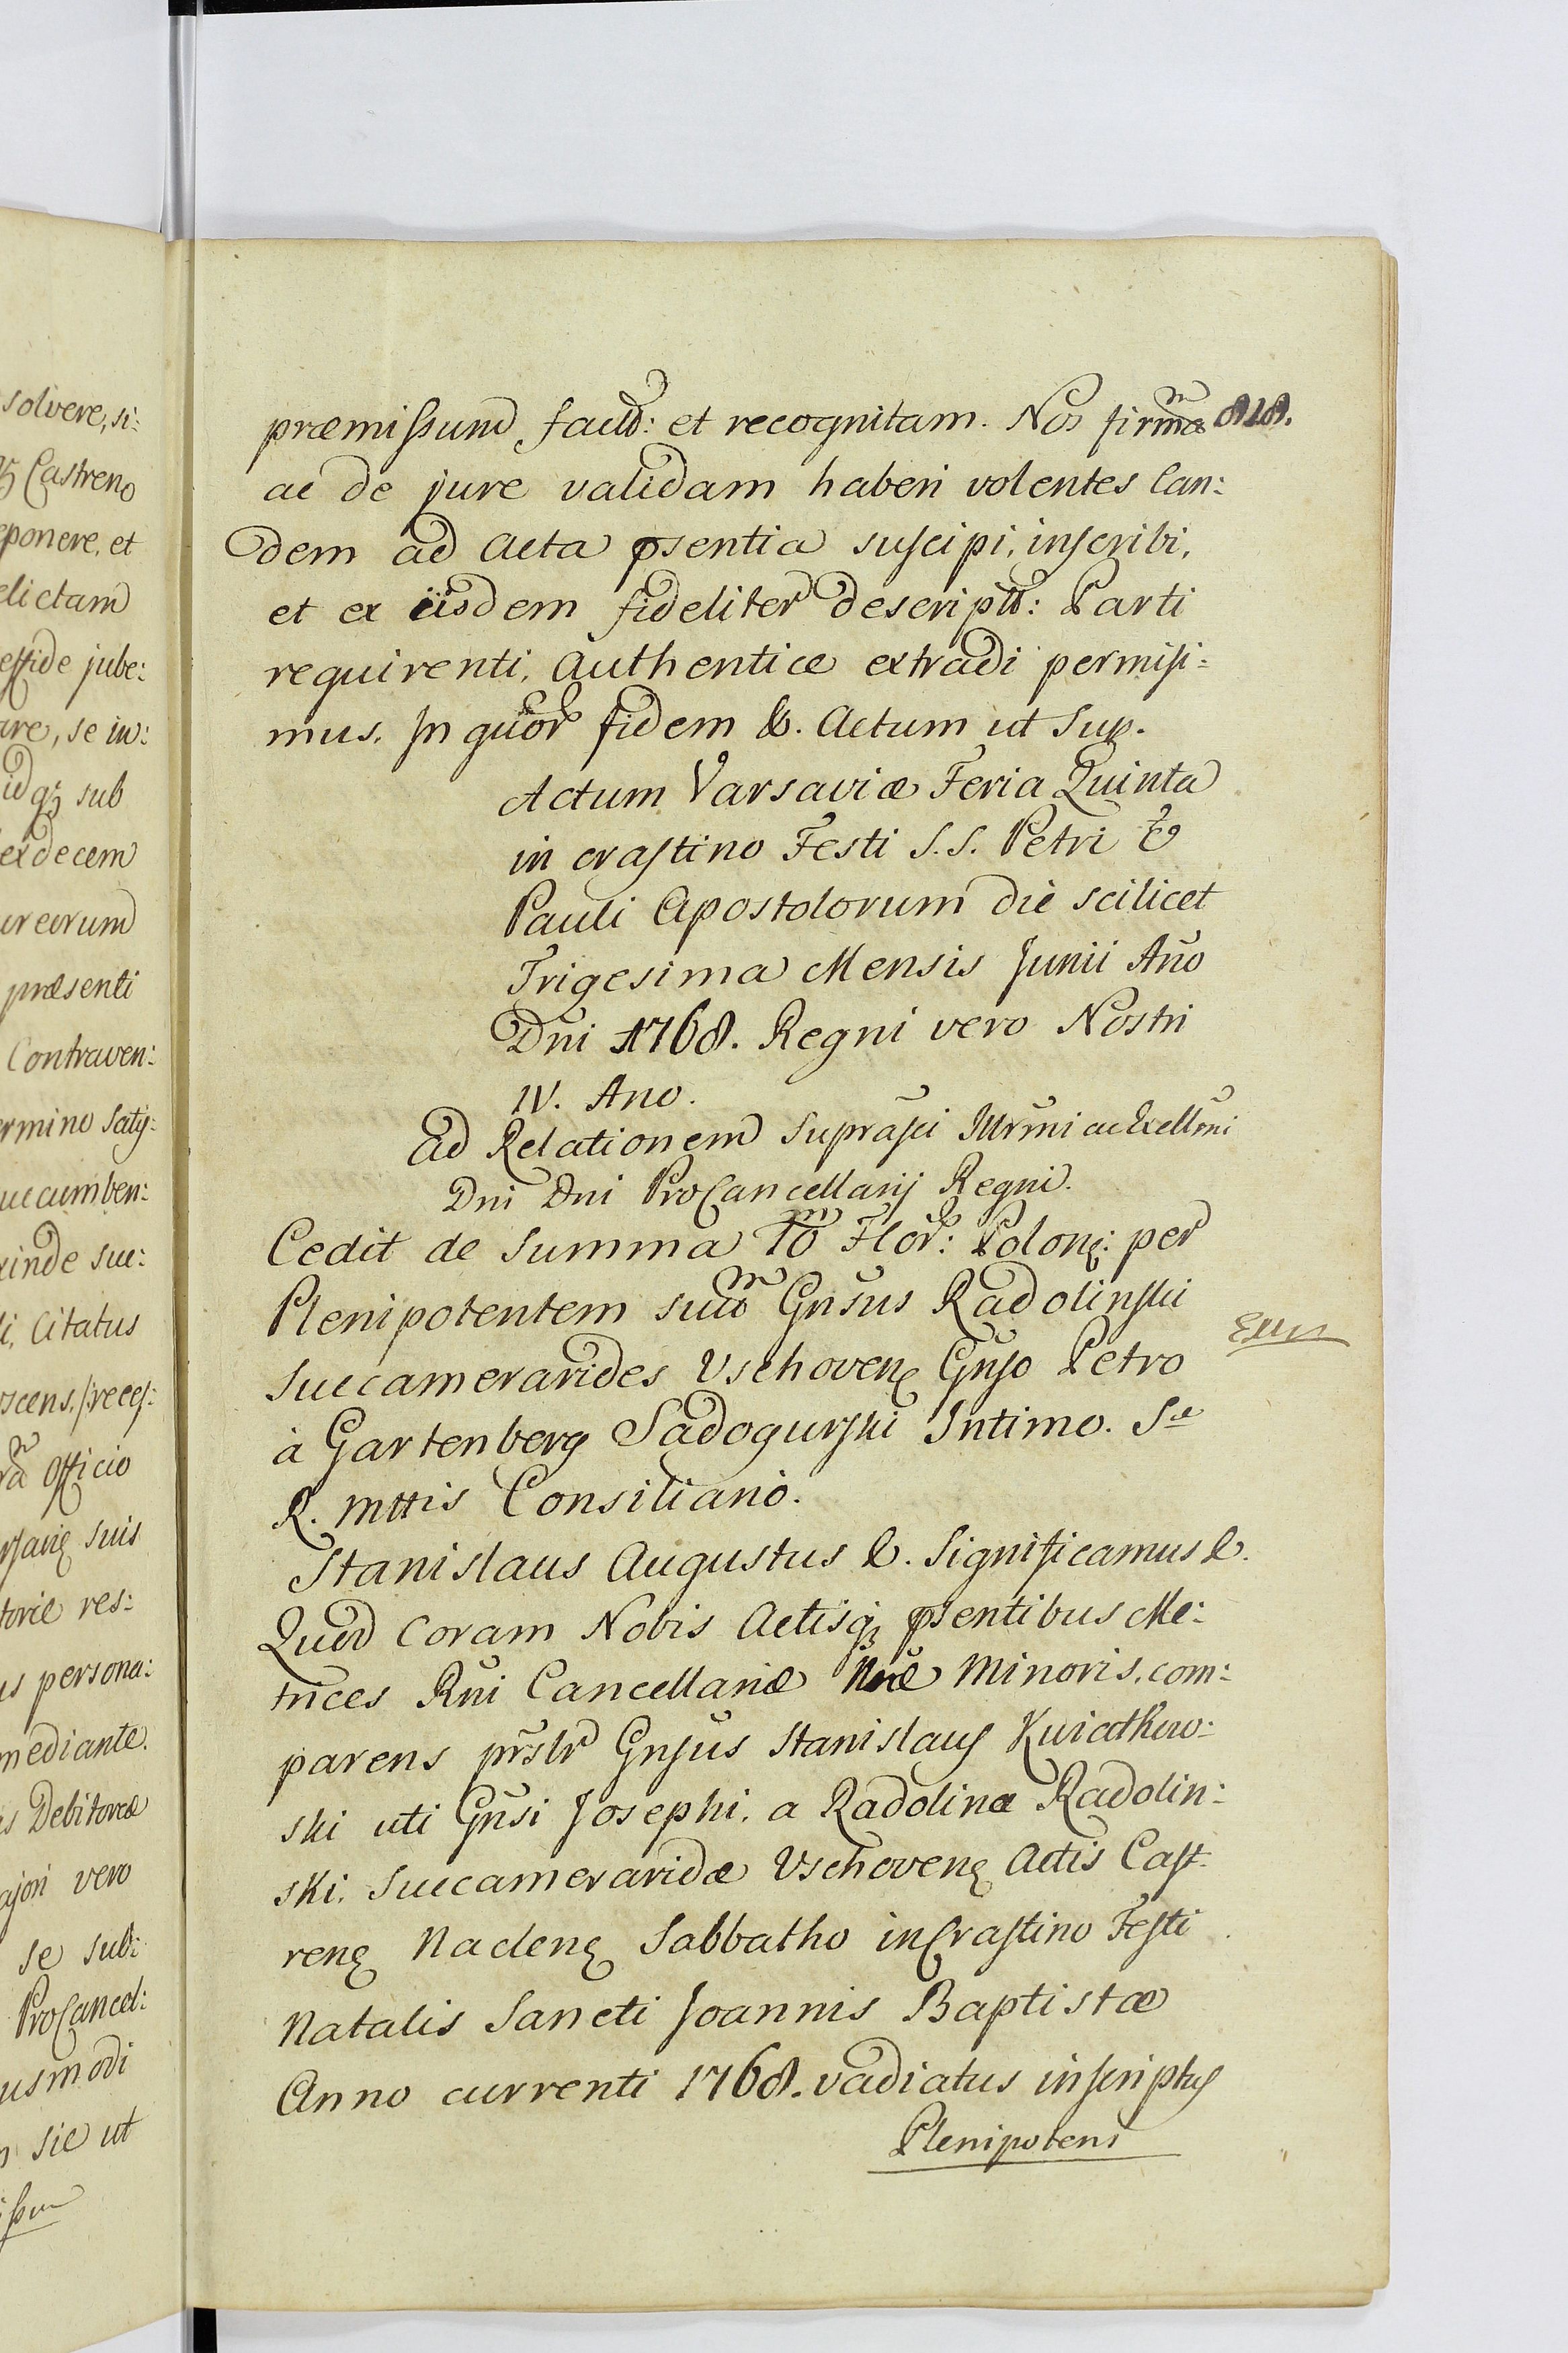 solvere, si:
qz Castreno
eponere, et
elictam
effide jube:
are, se in:
idqz sub
exdecem
ureorum
præsenti
Contraven:
ermino Satis:
uccumben:
xinde suc:
li. Citatus
Officio
suis
torie res:
us persona:
mediante.
is Debitoreæ
ajori vero
se sub:
ProCancel:
usmodi
sic ut
818.
præmissum factã: et recognitam. Nos firmã
ac de jure validam haberi volentes Ean:
dem ad Acta pſentia suscipi, inscribi,
et ex iisdem fideliter descriptã: Parti
requirenti, Authentice extradi permisi:
mus. In quor̃ fidem &. Actum ut Sup.
Actum Varsaviæ Feria Quinta
in crastino Festi S.S. Petri &
Pauli Apostolorum die scilicet
Trigesima Mensis Junii Año
Dñi 1768. Regni vero Nostri
IV. Ano.
Ad Relationem suprãſci Illr̃mi ac Excellm̃i
Dni Dni ProCancellarij Regni.
Cedit de Summa 10 m Flor̃: Polonę: per
Plenipotentem suũ Gnsus Radolinski
Succamerarides Vschovenę Gñso Petro
à Gartenberg Sadogurski Intimo. Sæ
R. Mttis Consiliario.
Exm
Stanislaus Augustus &. Significamus &.
Quod Coram Nobis Actisqȝ pſentibus Me:
trices Rñi Cancellariæ Nræ Minoris, com:
parens pr̃slr Gnsus Stanislaus Kwiatkow:
ski uti Gñsi Josephi, a Radolina Radolin:
ski. Succameraridæ Vschovenę Actis Cast:
renę Naclenę Sabbatho in Crastino Festi
Natalis Sancti Joannis Baptistæ
Anno currenti 1768. vadiatus inscriptus
Plenipotens